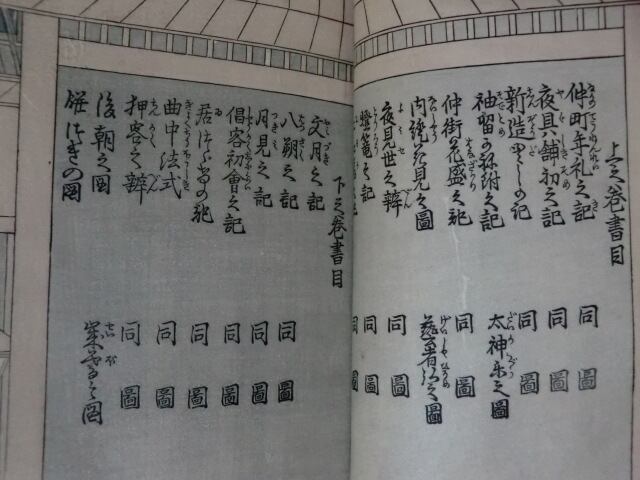 上之巻書目
仲町年礼之記 同 圖
夜具舗初之記 同 圖
新造出しの記 同 圖
袖留の弁附之記 太神楽之圖
仲街花盛之記 同 圖
内証花見之圖 藝者
夜見世之辨 同 圖
燈篭之記 同 圖
同 圖
下之巻書目
文月之記
八朔之記 同 圖
月見之記 同 圖
倡客初會之記 同 圖
居つゞけの記 同 圖
曲中法式 同 圖
押客之辨 同 圖
後朝之図
餅つきの図